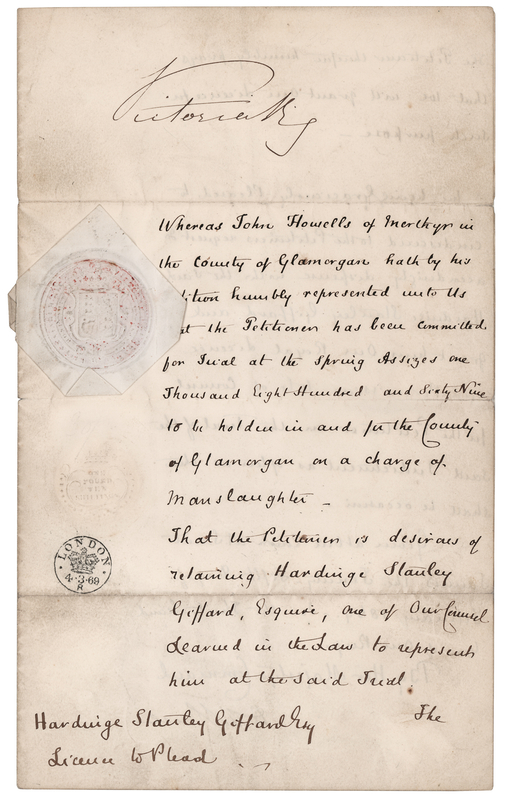 Victoria R
Whereas John Howells of Merthyr in
the County of Glamorgan hath by his
tition humbly represented unto Us
at the Petitioner has been committed
for Trial at the Spring Assizes one
Thousand Eight Hundred and Sixty Nine
to be holden in and for the County
of Glamorgan on a charge of
Manslaughter –
That the Petitioner is desirous of
retaining Hardinge Stanley
Giffard, Esquire, one of Our Counsel
Learned in the Law to represent
him at the said Trial.
The
LONDON
4·3·69
R
Hardinge Stanley Giffard Esq
Licence to Plead